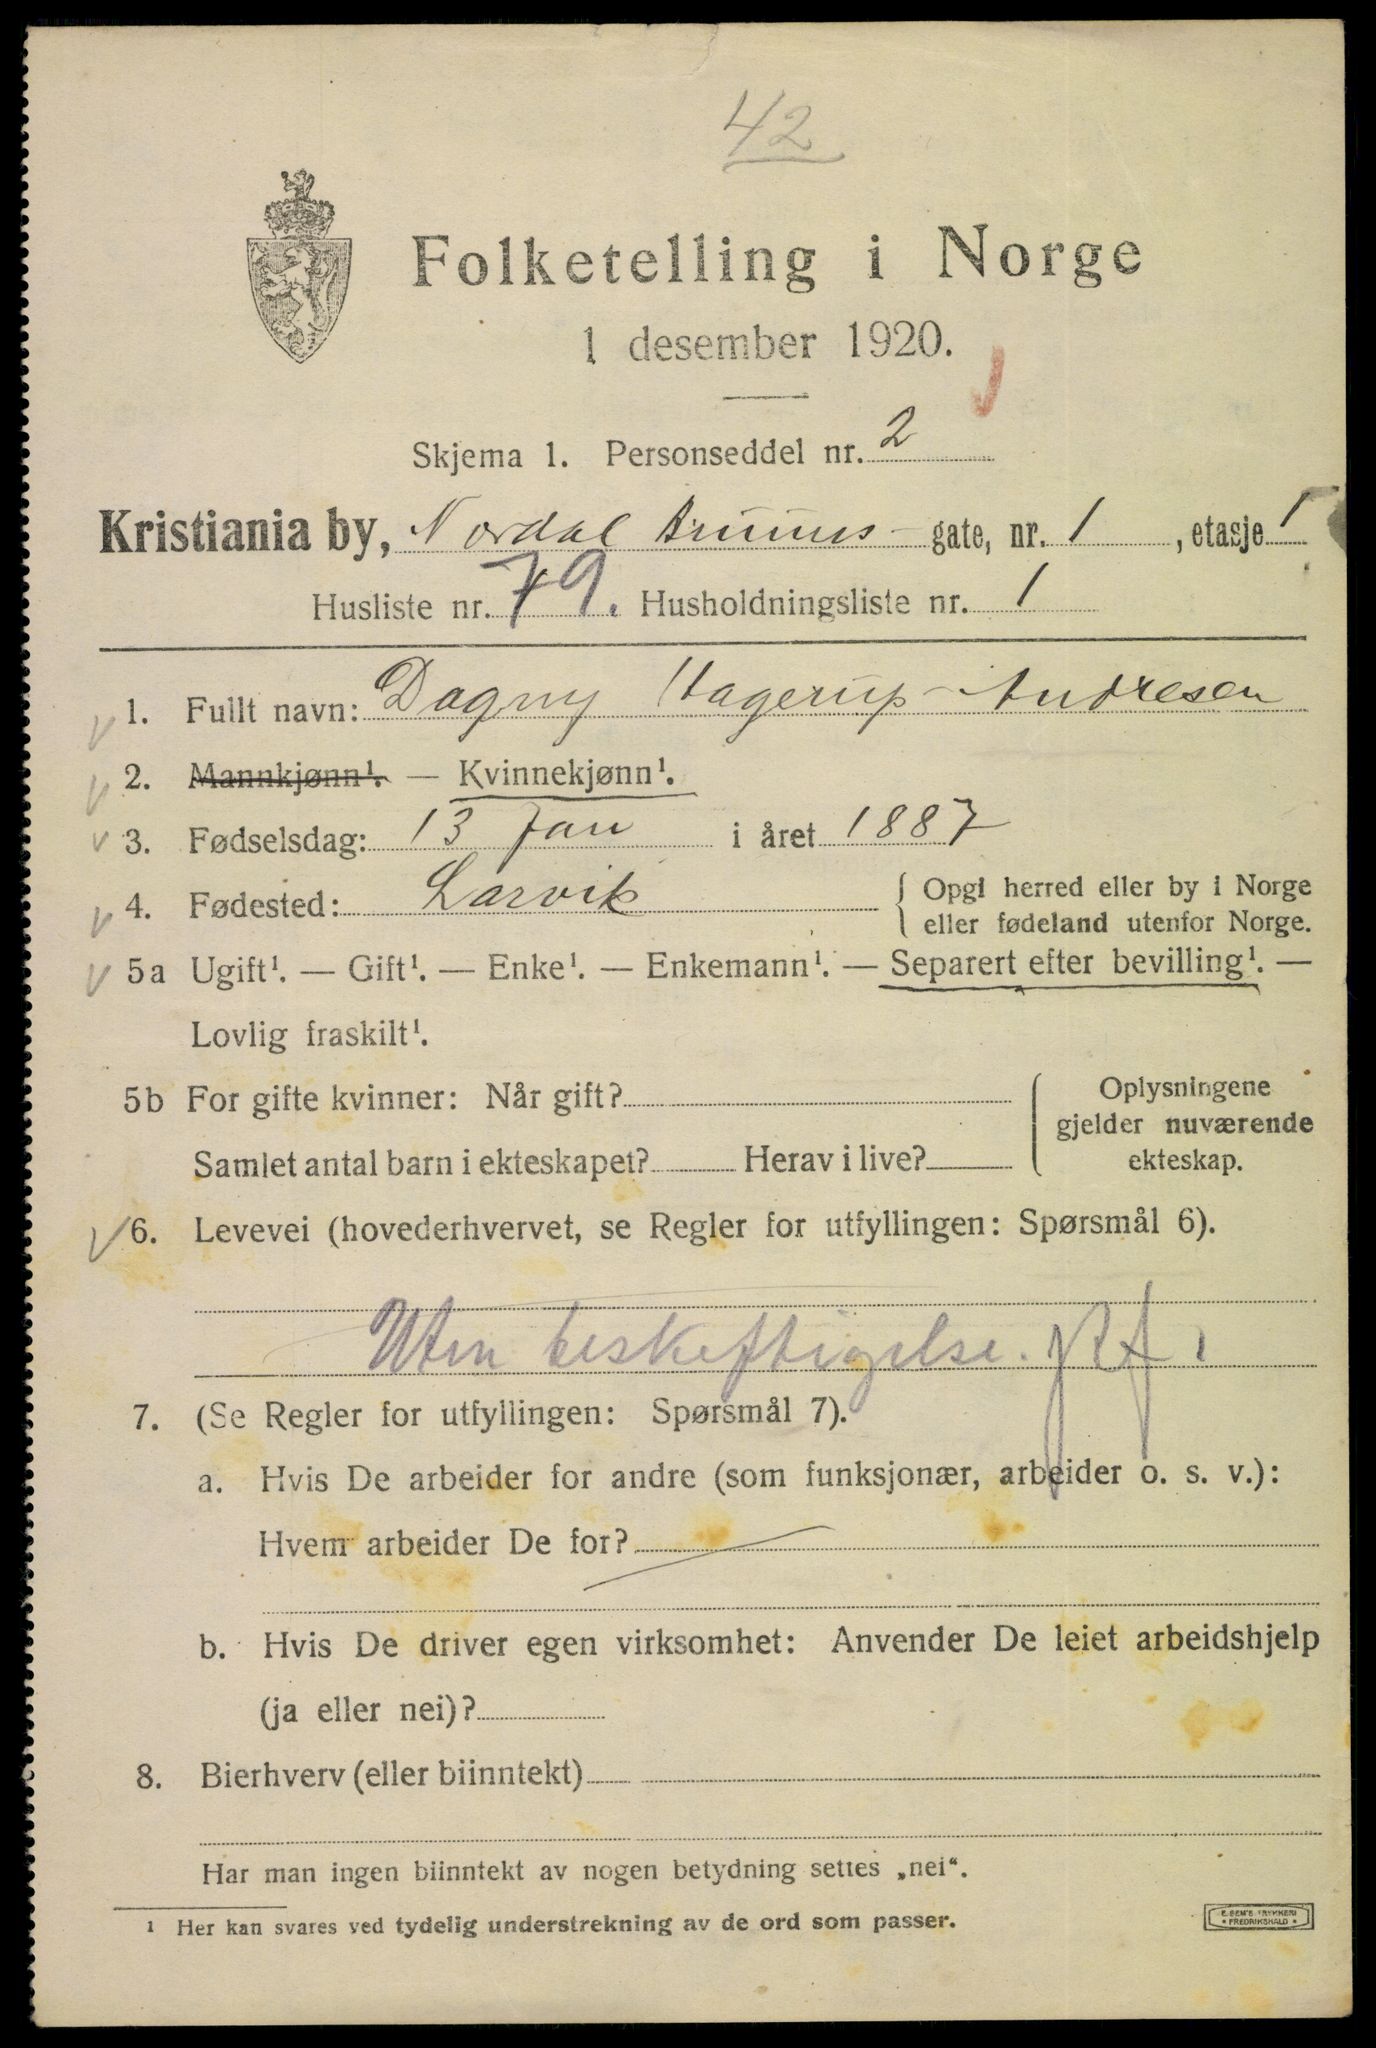 42
Folketelling i Norge
1 desember 1920.
Skjema 1. Personseddel nr. 2
Kristiania by, Nordal Bruuns gate, nr. 1, etasje 1
Husliste nr. 79. Husholdningsliste nr. 1
1. Fullt navn: Dagny Hagerup-Andresen
2. Mannkjønn¹. — Kvinnekjønn¹.
3. Fødselsdag: 13 Jan i året 1887
4. Fødested: Larvik { Opgi herred eller by i Norge
eller fødeland utenfor Norge.
5a Ugift¹. — Gift¹. — Enke¹. — Enkemann¹. — Separert efter bevilling¹. —
Lovlig fraskilt¹.
5b For gifte kvinner: Når gift? { Oplysningene
gjelder nuværende
Samlet antal barn i ekteskapet? Herav i live? ekteskap.
6. Levevei (hovederhvervet, se Regler for utfyllingen: Spørsmål 6).
Uten beskeftigelse.
7. (Se Regler for utfyllingen: Spørsmål 7).
a. Hvis De arbeider for andre (som funksjonær, arbeider o. s. v.):
Hvem arbeider De for?
b. Hvis De driver egen virksomhet: Anvender De leiet arbeidshjelp
(ja eller nei)?
8. Bierhverv (eller biinntekt)
Har man ingen biinntekt av nogen betydning settes „nei“.
¹ Her kan svares ved tydelig understrekning av de ord som passer.
E. SEM'S TRYKKERI
• FREDRIKSHALD •